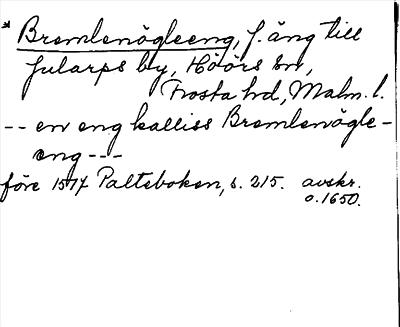 * Bremlenögleeng, f. äng till
Jularps by, Höörs sn,
Frosta hd, Malm. l.
-- en eng kalliss Bremlenögle-
eng ---
före 1517 Palteboken, s. 215. avskr.
o. 1650.